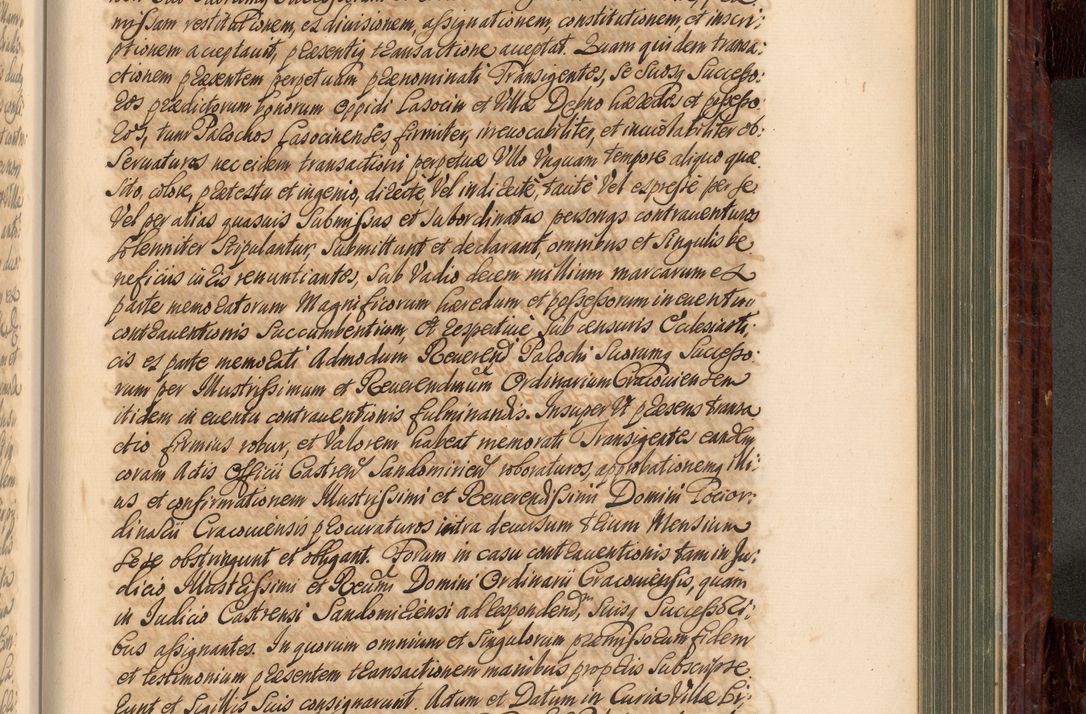 missam restitutionem, ex divisionem, assignationem, constitutionem, et inscri:
ptionem acceptavit, præsentiq transactione acceptat. Quam quidem transa:
ctionem præsentem perpetuam prænominati Transigentes, se suosq Successo:
res prædictorum bonorum oppidi Lasocin et Villæ Dębno hæredes et possesso
res, tum Parochos Lasocinenses, firmiter, irrevocabiliter, et inviolabiliter ob:
servaturos nec eidem transactioni perpetuæ Ullo Unquam tempore aliquo quæ
sito, colore, prætextu et ingenio, directe Vel indirecte, tacite Vel expresse per se
Vel per alias quasuis submissas et subordinatas personas contraventuros
solenniter stipulantur, submittunt et declarant, omnibus et singulis be
neficiis iuris renuntiantes, sub Vadio decem millium marcarum ex
parte memoratorum Magnificorum hæredum et possessorum in eventu
contraventionis succumbentium, et respective sub censuris Ecclesiasti,
cis ex parte memorati Admodum Reverend Parochi suorumq Successo:
rum per Illustrissimum et Reverendmum Ordinarium Cracoviensem
itidem in eventu contraventionis fulminandis. Insuper Ut præsens transa
ctio firmius robur, et Valorem habeat memorati Transigentes eandem
coram Actis Officii Castren Sandomirien roboraturos, approbationemq illi:
us, et confirmationem Illustrissimi et Reverendissimi Domini Loci Or:
dinarii Cracoviensis procuraturos intra decursum trium Mensium
se se obstringunt et obligant. Forum in casu contraventionis tam in Ju:
dicio Illustrissimi et Revermi Domini Ordinarii Cracoviensis, quam
in Judicio Castrensi Sandomiriensi ad respondend, suisq Successori:
bus assignantes. In quorum omnium et singulorum præmissorum fidem
et testimonium præsentem transactionem manibus propriis subscripse
runt et sigillis suis consignarunt. Actum et Datum in Curia Villæ Bi: